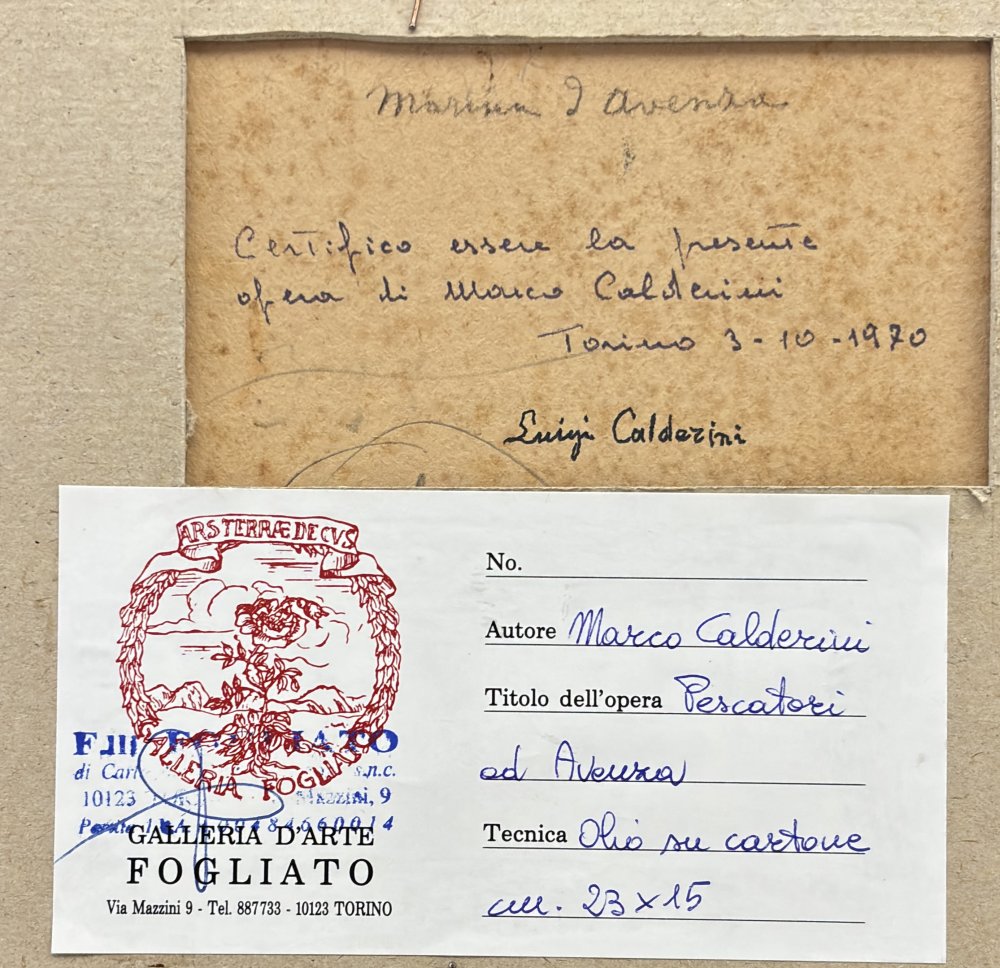 Marina d'Avenza
Certifico essere la presente
opera di Marco Calderini
Torino 3-10-1970
Luigi Calderini
ARS TERRÆ DECVS
GALLERIA FOGLIATO
F.lli FOGLIATO
di Carl s.n.c.
10123 Mazzini, 9
00484660014
GALLERIA D'ARTE
FOGLIATO
Via Mazzini 9 - Tel. 887733 - 10123 TORINO
No.
Autore Marco Calderini
Titolo dell'opera Pescatori
ad Avenza
Tecnica Olio su cartone
cm. 23x15